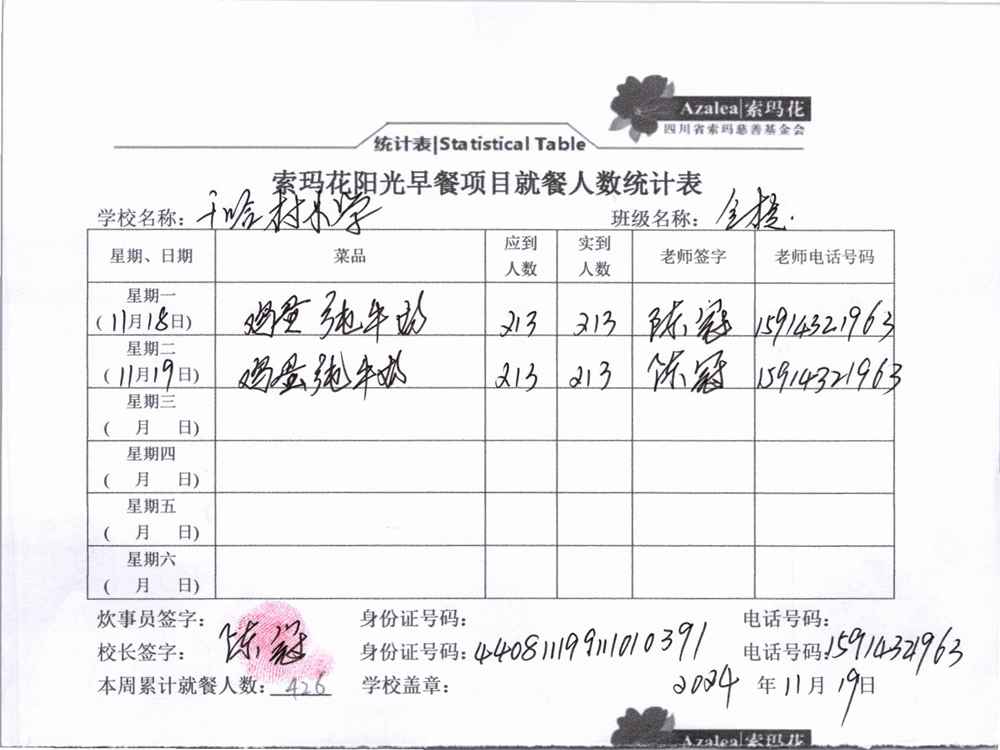 Azalea|索玛花
四川省索玛慈善基金会
统计表|Statistical Table
索玛花阳光早餐项目就餐人数统计表
学校名称: 干哈村小学 班级名称:
星期、日期 菜品 应到人数 实到人数 老师签字 老师电话号码
星期一
(11月18日) 鸡蛋 纯牛奶 213 213 陈冠 15914321963
星期二
(11月19日) 鸡蛋 纯牛奶 213 213 陈冠 15914321963
星期三
( 月 日)
星期四
( 月 日)
星期五
( 月 日)
星期六
( 月 日)
炊事员签字: 身份证号码: 电话号码:
校长签字: 陈冠 身份证号码: 440811199111010391 电话号码: 15914321963
本周累计就餐人数: 426 学校盖章: 2024 年 11 月 19 日
Azalea|索玛花